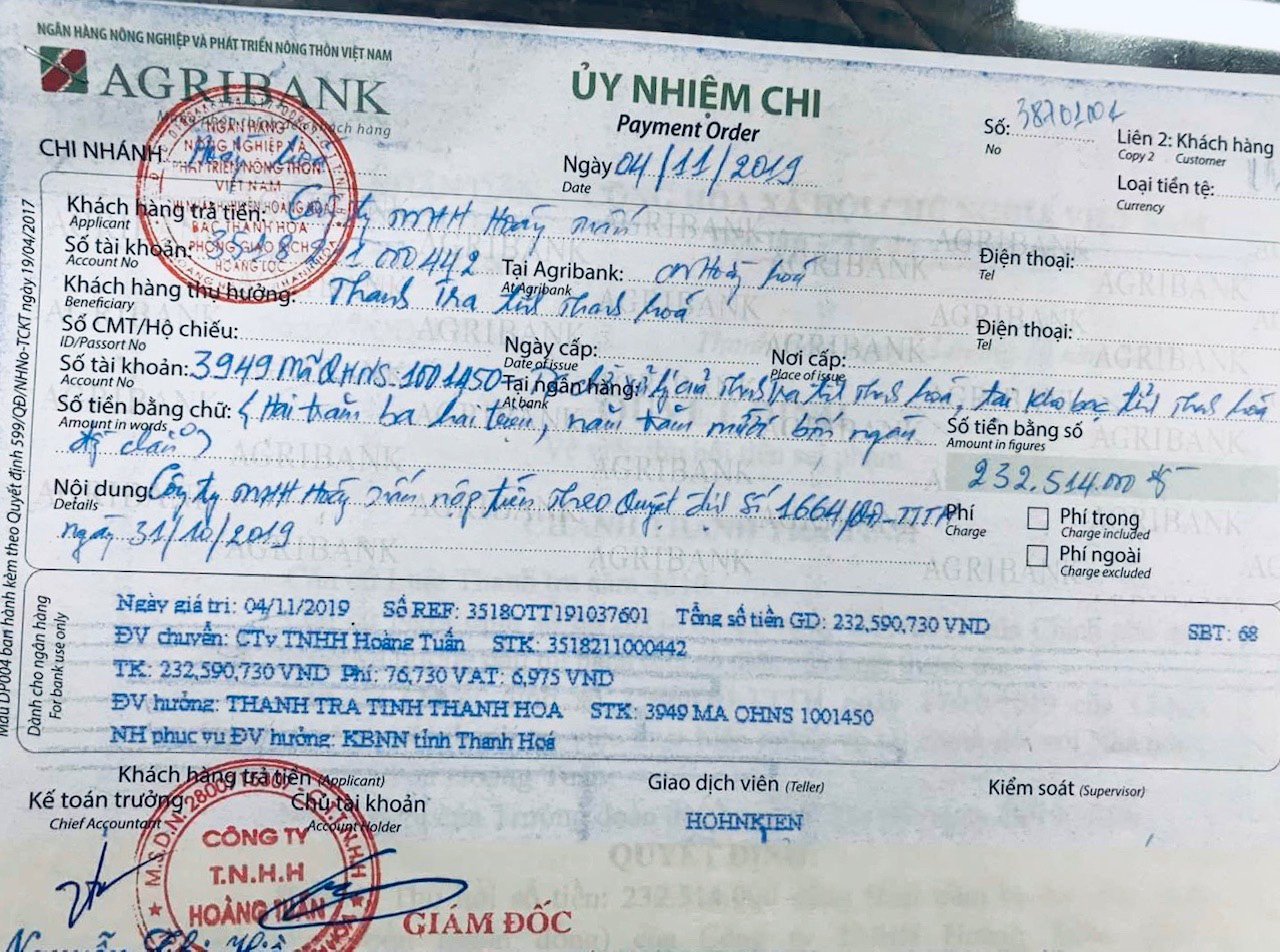 NGÂN HÀNG NÔNG NGHIỆP VÀ PHÁT TRIỂN NÔNG THÔN VIỆT NAM
AGRIBANK
CHI NHÁNH
ỦY NHIỆM CHI
Payment Order
Ngày 04/11/2019
Date
Số:
No
Liên 2: Khách hàng
Copy 2 Customer
Loại tiền tệ:
Currency
NGÂN HÀNG
NÔNG NGHIỆP VÀ
PHÁT TRIỂN NÔNG THÔN
VIỆT NAM
BẮC THANH HÓA
PHÒNG GIAO DỊCH
HOẰNG LỘC
Khách hàng trả tiền: Công ty TNHH Hoàng Tuấn
Applicant
Số tài khoản: 3518 211 000442 Tại Agribank: Hoằng hoá Điện thoại:
Account No At Agribank Tel
Khách hàng thụ hưởng: Thanh Tra tỉnh Thanh hoá
Beneficiary
Số CMT/Hộ chiếu: Ngày cấp: Nơi cấp: Điện thoại:
ID/Passort No Date of issue Place of issue Tel
Số tài khoản: 3949 Mã QHNS 1001450 Tại ngân hàng: Thanh tra tỉnh Thanh hoá, tại kho bạc tỉnh Thanh hoá
Account No At bank
Số tiền bằng chữ: Hai trăm ba hai triệu, năm trăm mười bốn ngàn
Amount in words
Số tiền bằng số
Amount in figures
232.514.000 đ
Nội dung: Công ty TNHH Hoàng Tuấn nộp tiền theo Quyết định số 1664/QĐ-TTTH
Details
ngày 31/10/2019
Phí
Charge
Phí trong
Charge included
Phí ngoài
Charge excluded
Mẫu DP004 ban hành kèm theo Quyết định 599/QĐ/NHNo-TCKT ngày 19/04/2017
Dành cho ngân hàng
For bank use only
Ngày giá trị: 04/11/2019 Số REF: 3518OTT191037601 Tổng số tiền GD: 232,590,730 VND SBT: 68
ĐV chuyển: CTy TNHH Hoàng Tuấn STK: 3518211000442
TK: 232,590,730 VND Phí: 76,730 VAT: 6,975 VND
ĐV hưởng: THANH TRA TINH THANH HOA STK: 3949 MA QHNS 1001450
NH phục vụ ĐV hưởng: KBNN tỉnh Thanh Hoá
Khách hàng trả tiền (Applicant)
Kế toán trưởng Chủ tài khoản
Chief Accountant Account Holder
Giao dịch viên (Teller)
HOHNKIEN
Kiểm soát (Supervisor)
CÔNG TY
T.N.H.H
HOÀNG TUẤN
GIÁM ĐỐC
QUYẾT ĐỊNH: